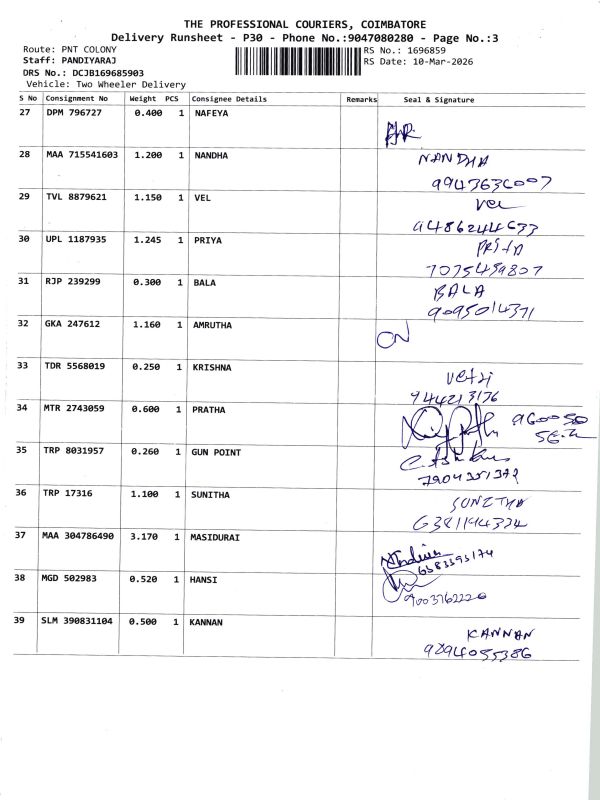 THE PROFESSIONAL COURIERS, COIMBATORE
Delivery Runsheet - P30 - Phone No.:9047080280 - Page No.:3
Route: PNT COLONY
Staff: PANDIYARAJ
DRS No.: DCJB169685903
Vehicle: Two Wheeler Delivery
RS No.: 1696859
RS Date: 10-Mar-2026
S No Consignment No Weight PCS Consignee Details Remarks Seal & Signature
27 DPM 796727 0.400 1 NAFEYA
28 MAA 715541603 1.200 1 NANDHA NANDHA
9943636007
29 TVL 8879621 1.150 1 VEL Vel
9486244633
30 UPL 1187935 1.245 1 PRIYA PRIYA
7075459807
31 RJP 239299 0.300 1 BALA BALA
9095014371
32 GKA 247612 1.160 1 AMRUTHA
33 TDR 5568019 0.250 1 KRISHNA Vetri
944213176
34 MTR 2743059 0.600 1 PRATHA
35 TRP 8031957 0.260 1 GUN POINT
36 TRP 17316 1.100 1 SUNITHA SUNITHA
6381194334
37 MAA 304786490 3.170 1 MASIDURAI
6383393174
38 MGD 502983 0.520 1 HANSI
9003762220
39 SLM 390831104 0.500 1 KANNAN KANNAN
9294055386